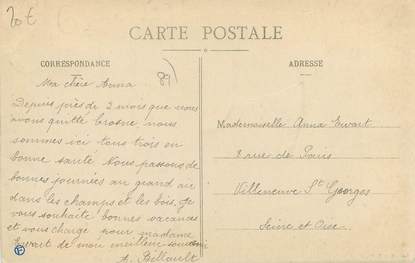 CARTE POSTALE
CORRESPONDANCE
Ma chère Anna
Depuis près de 2 mois que nous
avons quitté Crosne, nous
sommes ici tous trois en
bonne santé. Nous passons de
bonnes journées au grand air
dans les champs et les bois. Je
vous souhaite bonnes vacances
et vous charge pour madame
Ewart de mon meilleur souvenir
A. Billault
ADRESSE
Mademoiselle Anna Ewart
8 rue de Paris
Villeneuve St Georges
Seine et Oise